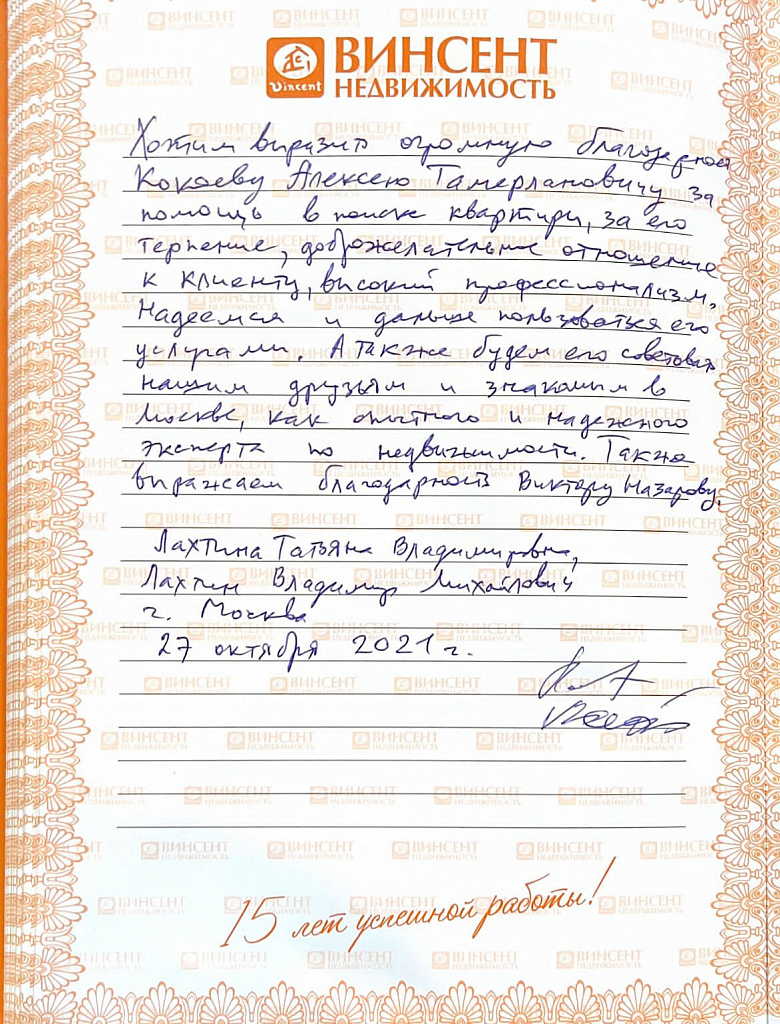 Vincent
ВИНСЕНТ
НЕДВИЖИМОСТЬ
Хотим выразить огромную благодарность
Кокоеву Алексею Тамерлановичу за
помощь в поиске квартиры, за его
терпение, доброжелательное отношение
к клиенту, высокий профессионализм.
Надеемся и дальше пользоваться его
услугами. А также будем его советовать
нашим друзьям и знакомым в
Москве, как опытного и надежного
эксперта по недвижимости. Также
выражаем благодарность Виктору Назарову.
Лахтина Татьяна Владимировна,
Лахтин Владимир Михайлович
г. Москва
27 октября 2021 г.
15 лет успешной работы!